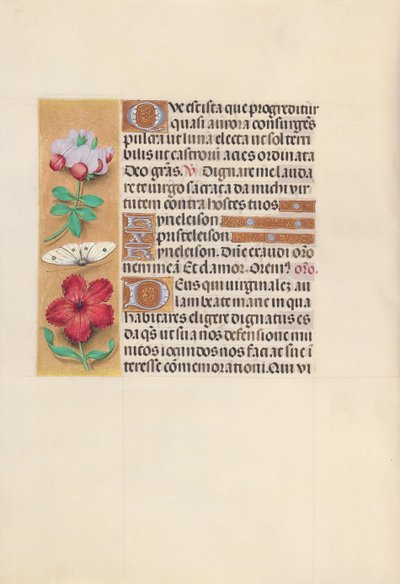 Que est ista que progreditur
quasi aurora consurgēs
pulcra ut luna electa ut sol terri
bilis ut castrorū acies ordinata
Deo gr̄as. V̄ Dignare me lauda
re te virgo sacrata da michi vir
tutem contra hostes tuos
Kyrieleison
Xp̄isteleison
Kyrieleison. Dn̄e exaudi or̄o
nem meā Et clamor. Orem? or̄o.
Deus qui virginalē au
lam beate marie in qua
habitares eligere dignatus es
da q̄s ut sua nos defensione mu
nitos iocundos nos faciat sue ī
teresse cōmemorationi. Qui vi